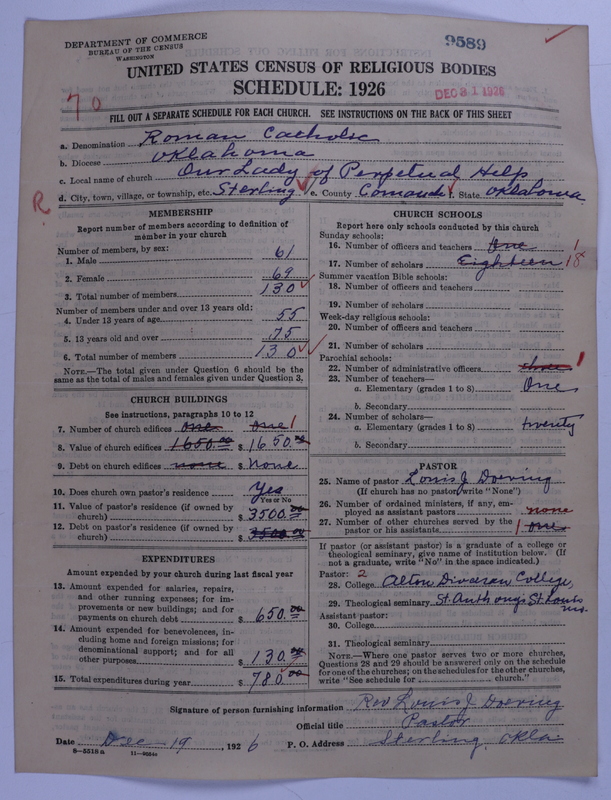 DEPARTMENT OF COMMERCE
BUREAU OF THE CENSUS
WASHINGTON
9589
UNITED STATES CENSUS OF RELIGIOUS BODIES
SCHEDULE: 1926
DEC 31 1926
70
FILL OUT A SEPARATE SCHEDULE FOR EACH CHURCH. SEE INSTRUCTIONS ON THE BACK OF THIS SHEET
a. Denomination Roman Catholic
b. Diocese Oklahoma
c. Local name of church Our Lady of Perpetual Help
R
d. City, town, village, or township, etc. Sterling e. County Comanche f. State Oklahoma
MEMBERSHIP
Report number of members according to definition of
member in your church
Number of members, by sex:
1. Male 61
2. Female 69
3. Total number of members 130
Number of members under and over 13 years old:
4. Under 13 years of age 55
5. 13 years old and over 75
6. Total number of members 130
NOTE.—The total given under Question 6 should be
same as the total of males and females given under Question 3.
CHURCH BUILDINGS
See instructions, paragraphs 10 to 12
7. Number of church edifices one one 1
8. Value of church edifices 1650.00 $ 1650.00
9. Debt on church edifices none $ None
10. Does church own pastor's residence Yes
Yes or No
11. Value of pastor's residence (if owned by
church) $ 3500.00
12. Debt on pastor's residence (if owned by
church) $ 3500.00
EXPENDITURES
Amount expended by your church during last fiscal year
13. Amount expended for salaries, repairs,
and other running expenses; for im-
provements or new buildings; and for
payments on church debt $ 650.00
14. Amount expended for benevolences, in-
cluding home and foreign missions; for
denominational support; and for all
other purposes $ 130.00
15. Total expenditures during year $ 780.00
CHURCH SCHOOLS
Report here only schools conducted by this church
Sunday schools:
16. Number of officers and teachers One 1
17. Number of scholars Eighteen 18
Summer vacation Bible schools:
18. Number of officers and teachers
19. Number of scholars
Week-day religious schools:
20. Number of officers and teachers
21. Number of scholars
Parochial schools:
22. Number of administrative officers 1
23. Number of teachers—
a. Elementary (grades 1 to 8) One
b. Secondary
24. Number of scholars—
a. Elementary (grades 1 to 8) twenty
b. Secondary
PASTOR
25. Name of pastor Louis J Doering
(If church has no pastor write "None")
26. Number of ordained ministers, if any, em-
ployed as assistant pastors none
27. Number of other churches served by the
pastor or his assistants 1 one
If pastor (or assistant pastor) is a graduate of a college or
theological seminary, give name of institution below. (If
not a graduate, write "No" in the space indicated.)
Pastor: 2
28. College College,
29. Theological seminary St Anthonys St Louis
Mo.
Assistant pastor:
30. College
31. Theological seminary
NOTE.—Where one pastor serves two or more churches,
Questions 28 and 29 should be answered only on the schedule
for one of the churches; on the schedules for the other churches,
write "See schedule for church."
Signature of person furnishing information Rev Louis J. Doering
Official title Pastor
Date Dec 19, 1926 P. O. Address Sterling, Okla.
8—5518a 11—9654c